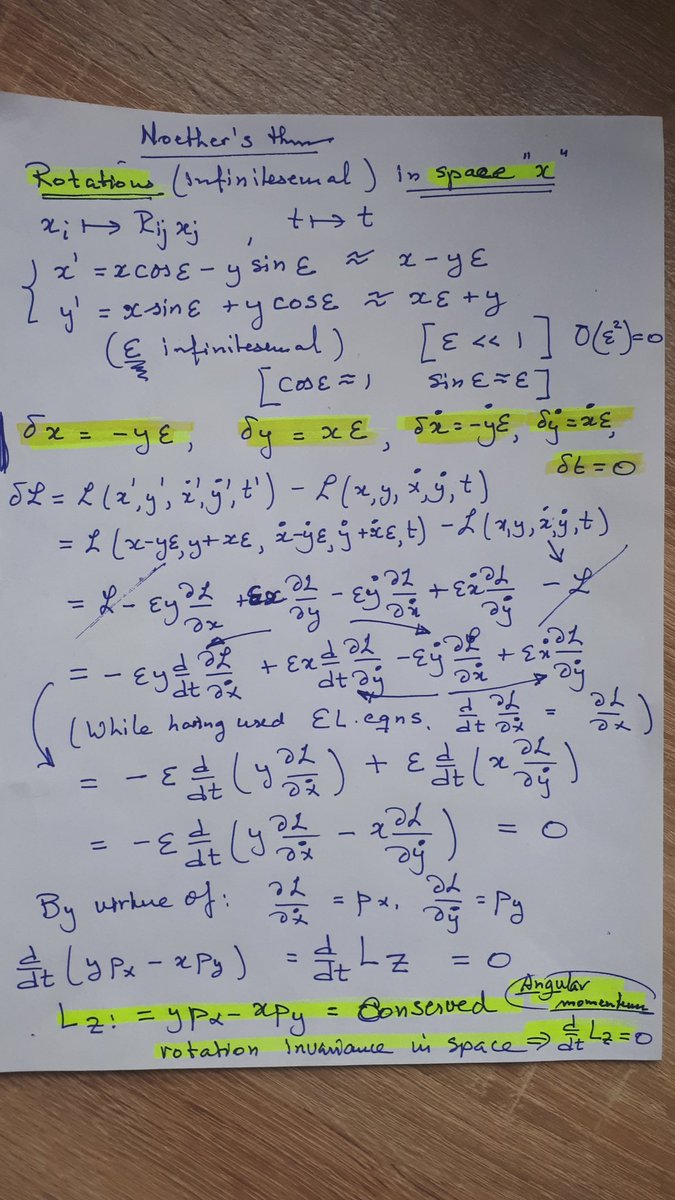 Noether's thm
Rotations (infinitesemal) in space "x"
xᵢ ↦ Rᵢⱼ xⱼ t ↦ t
{ x' = x cos ε − y sin ε ≈ x − yε
y' = x sin ε + y cos ε ≈ xε + y
(ε infinitesemal) [ε << 1] O(ε²)=0
[cos ε ≈ 1 sin ε ≈ ε]
δx = −yε, δy = xε, δẋ = −ẏε, δẏ = ẋε,
δt = 0
δℒ = ℒ(x', y', ẋ', ẏ', t') − ℒ(x, y, ẋ, ẏ, t)
= ℒ(x−yε, y+xε, ẋ−ẏε, ẏ+ẋε, t) − ℒ(x, y, ẋ, ẏ, t)
= ℒ − εy ∂ℒ/∂x + εx ∂ℒ/∂y − εẏ ∂ℒ/∂ẋ + εẋ ∂ℒ/∂ẏ − ℒ
= − εy d/dt ∂ℒ/∂ẋ + εx d/dt ∂ℒ/∂ẏ − εẏ ∂ℒ/∂ẋ + εẋ ∂ℒ/∂ẏ
(While having used EL. eqns. d/dt ∂ℒ/∂ẋ = ∂ℒ/∂x)
= − ε d/dt (y ∂ℒ/∂ẋ) + ε d/dt (x ∂ℒ/∂ẏ)
= − ε d/dt (y ∂ℒ/∂ẋ − x ∂ℒ/∂ẏ) = 0
By virtue of: ∂ℒ/∂ẋ = px, ∂ℒ/∂ẏ = py
d/dt (y px − x py) = d/dt Lz = 0
Lz := y px − x py = Conserved Angular momentum
rotation invariance in space ⇒ d/dt Lz = 0